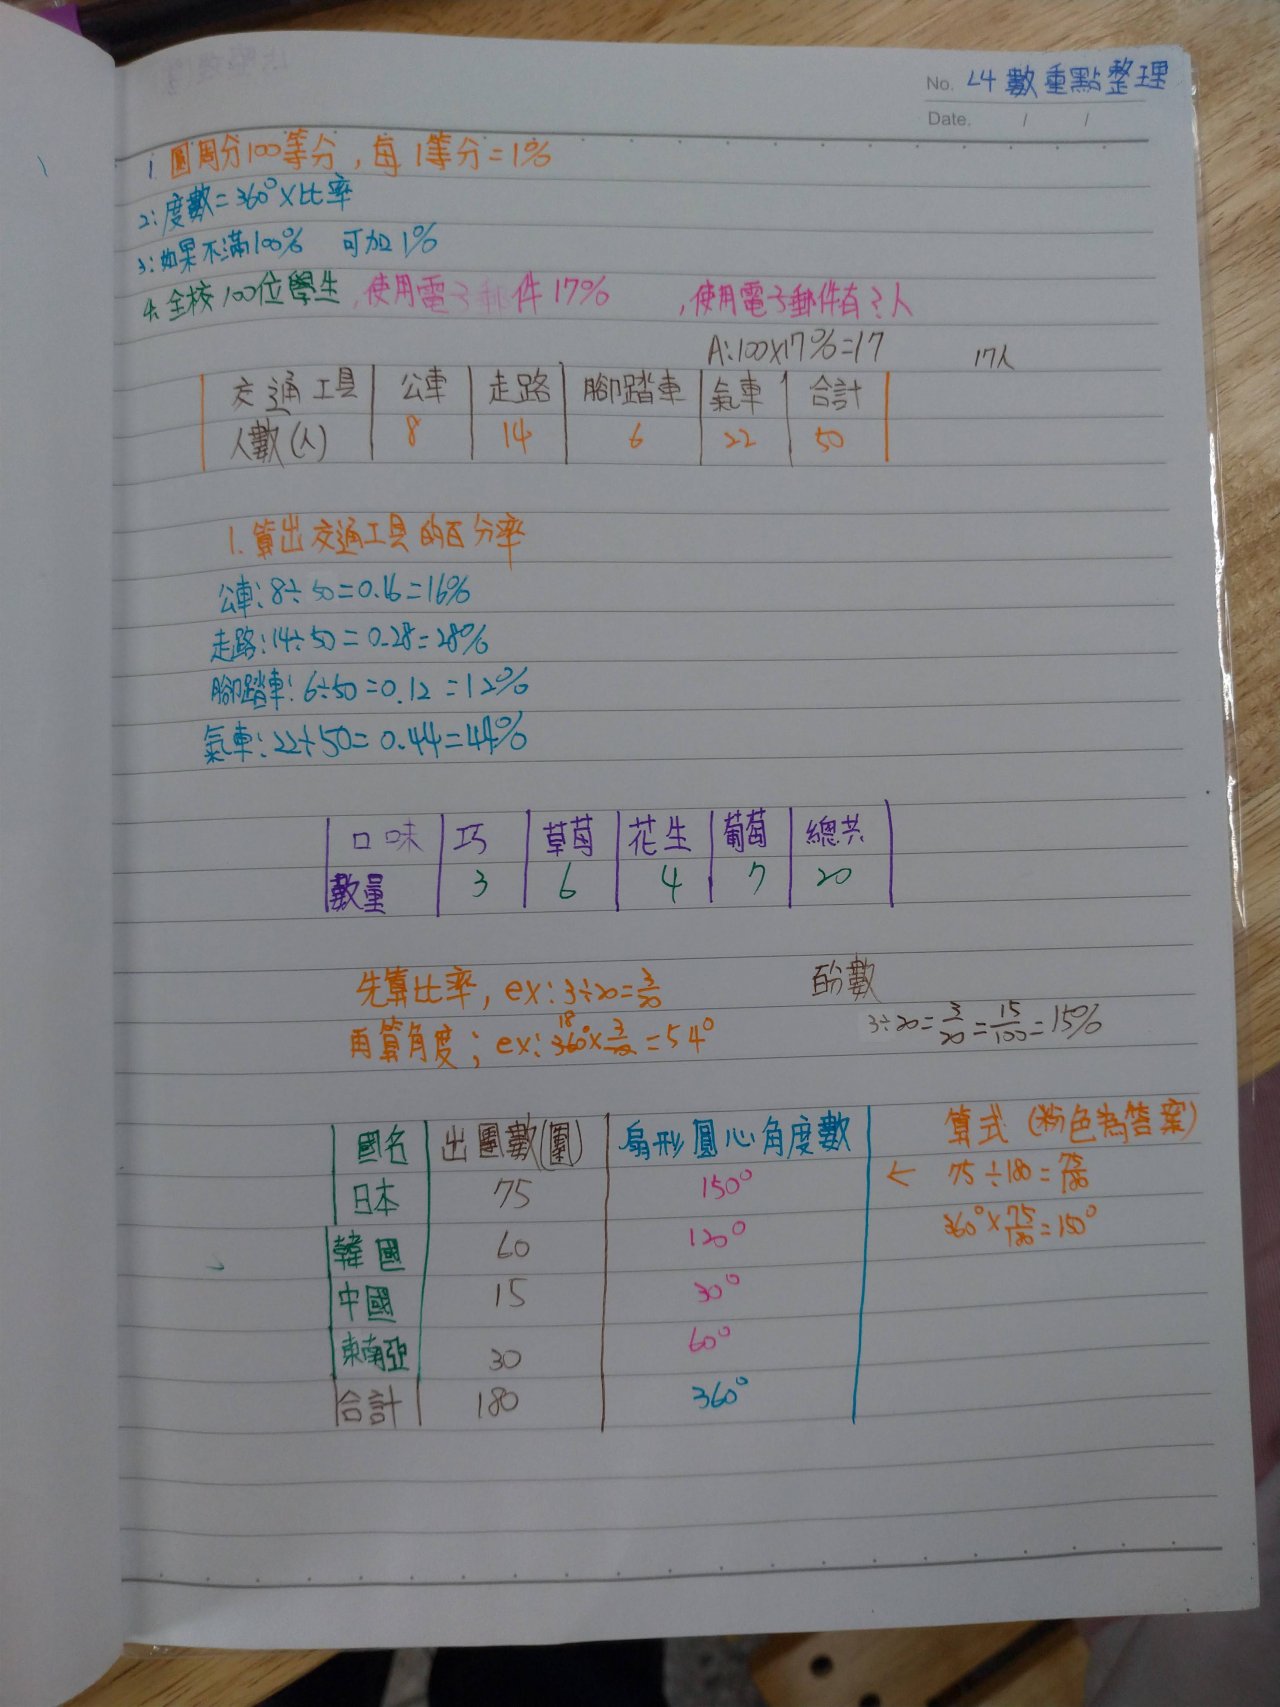 No. L4數重點整理
Date. / /
1. 圓周分100等分，每1等分=1%
2:度數=360°×比率
3:如果不滿100% 可加1%
4:全校100位學生,使用電子郵件17% ,使用電子郵件有?人
A:100×17%=17 17人
交通工具 公車 走路 腳踏車 氣車 合計
人數(人) 8 14 6 22 50
1.算出交通工具的百分率
公車:8÷50=0.16=16%
走路:14÷50=0.28=28%
腳踏車:6÷50=0.12=12%
氣車:22÷50=0.44=44%
口味 巧 草莓 花生 葡萄 總共
數量 3 6 4 7 20
先算比率, ex:3÷20=3/20 百分數
再算角度; ex:360°×3/20=54° 18
3÷20=3/20=15/100=15%
國名 出團數(團) 扇形圓心角度數 算式(粉色為答案)
日本 75 150° ← 75÷180=75/180
360°×75/180=150°
韓國 60 120°
中國 15 30°
東南亞 30 60°
合計 180 360°